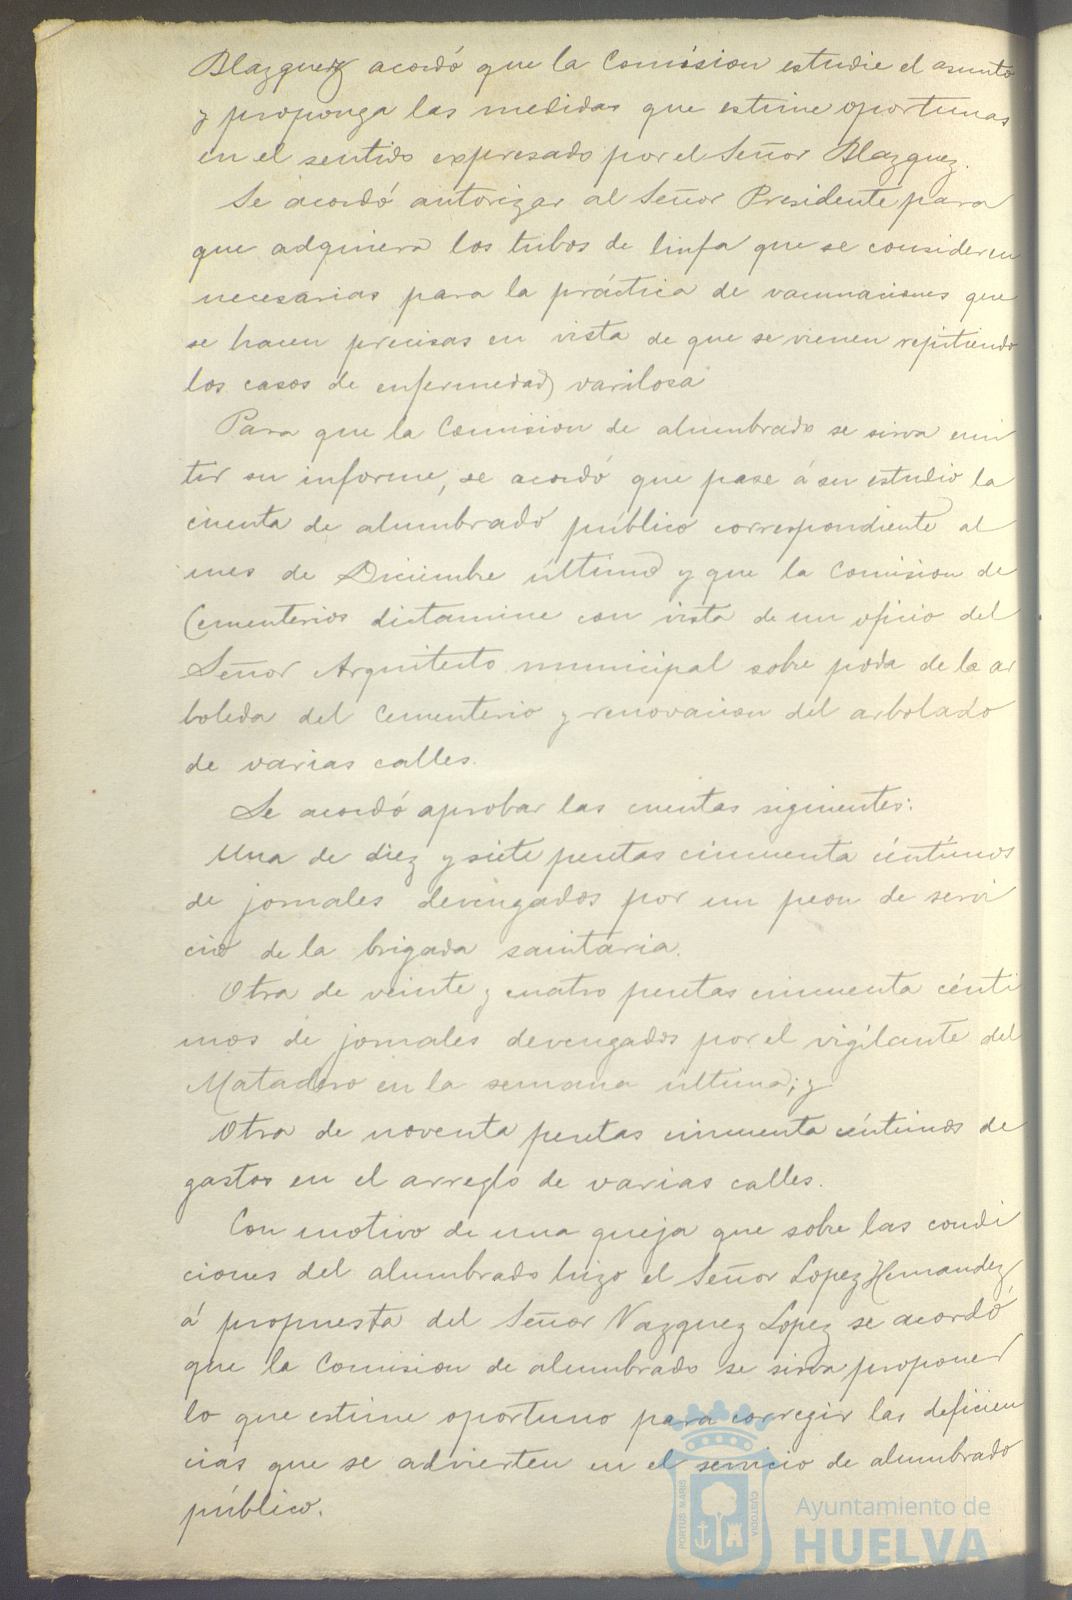 Blazquez acordó que la Comisión estudie el asunto
y proponga las medidas que estime oportunas
en el sentido expresado por el Señor Blazquez.
Se acordó autorizar al Señor Presidente para
que adquiera los tubos de linfa que se consideren
necesarias para la práctica de vacunaciones que
se hacen precisas en vista de que se vienen repitiendo
los casos de enfermedad varilosa
Para que la Comision de alumbrado se sirva emi
tir su informe, se acordó que pase á su estudio la
cuenta de alumbrado público correspondiente al
mes de Diciembre último y que la Comision de
Cementerios dictamine con vista de un oficio del
Señor Arquitecto municipal sobre poda de la ar
boleda del Cementerio y renovacion del arbolado
de varias calles.
Se acordó aprobar las cuentas siguientes:
Una de diez y siete pesetas cincuenta céntimos
de jornales devengados por un peon de servi
cio de la brigada sanitaria.
Otra de veinte y cuatro pesetas cincuenta cénti
mos de jornales devengados por el vigilante del
Matadero en la semana última; y
Otra de noventa pesetas cincuenta céntimos de
gastos en el arreglo de varias calles.
Con motivo de una queja que sobre las condi
ciones del alumbrado hizo el Señor Lopez Hernandez,
á propuesta del Señor Vazquez Lopez se acordó
que la Comision de alumbrado se sirva proponer
lo que estime oportuno para corregir las deficien
cias que se advierten en el servicio de alumbrado
público.
PORTUS MARIS
CUSTODIA
Ayuntamiento de
HUELVA